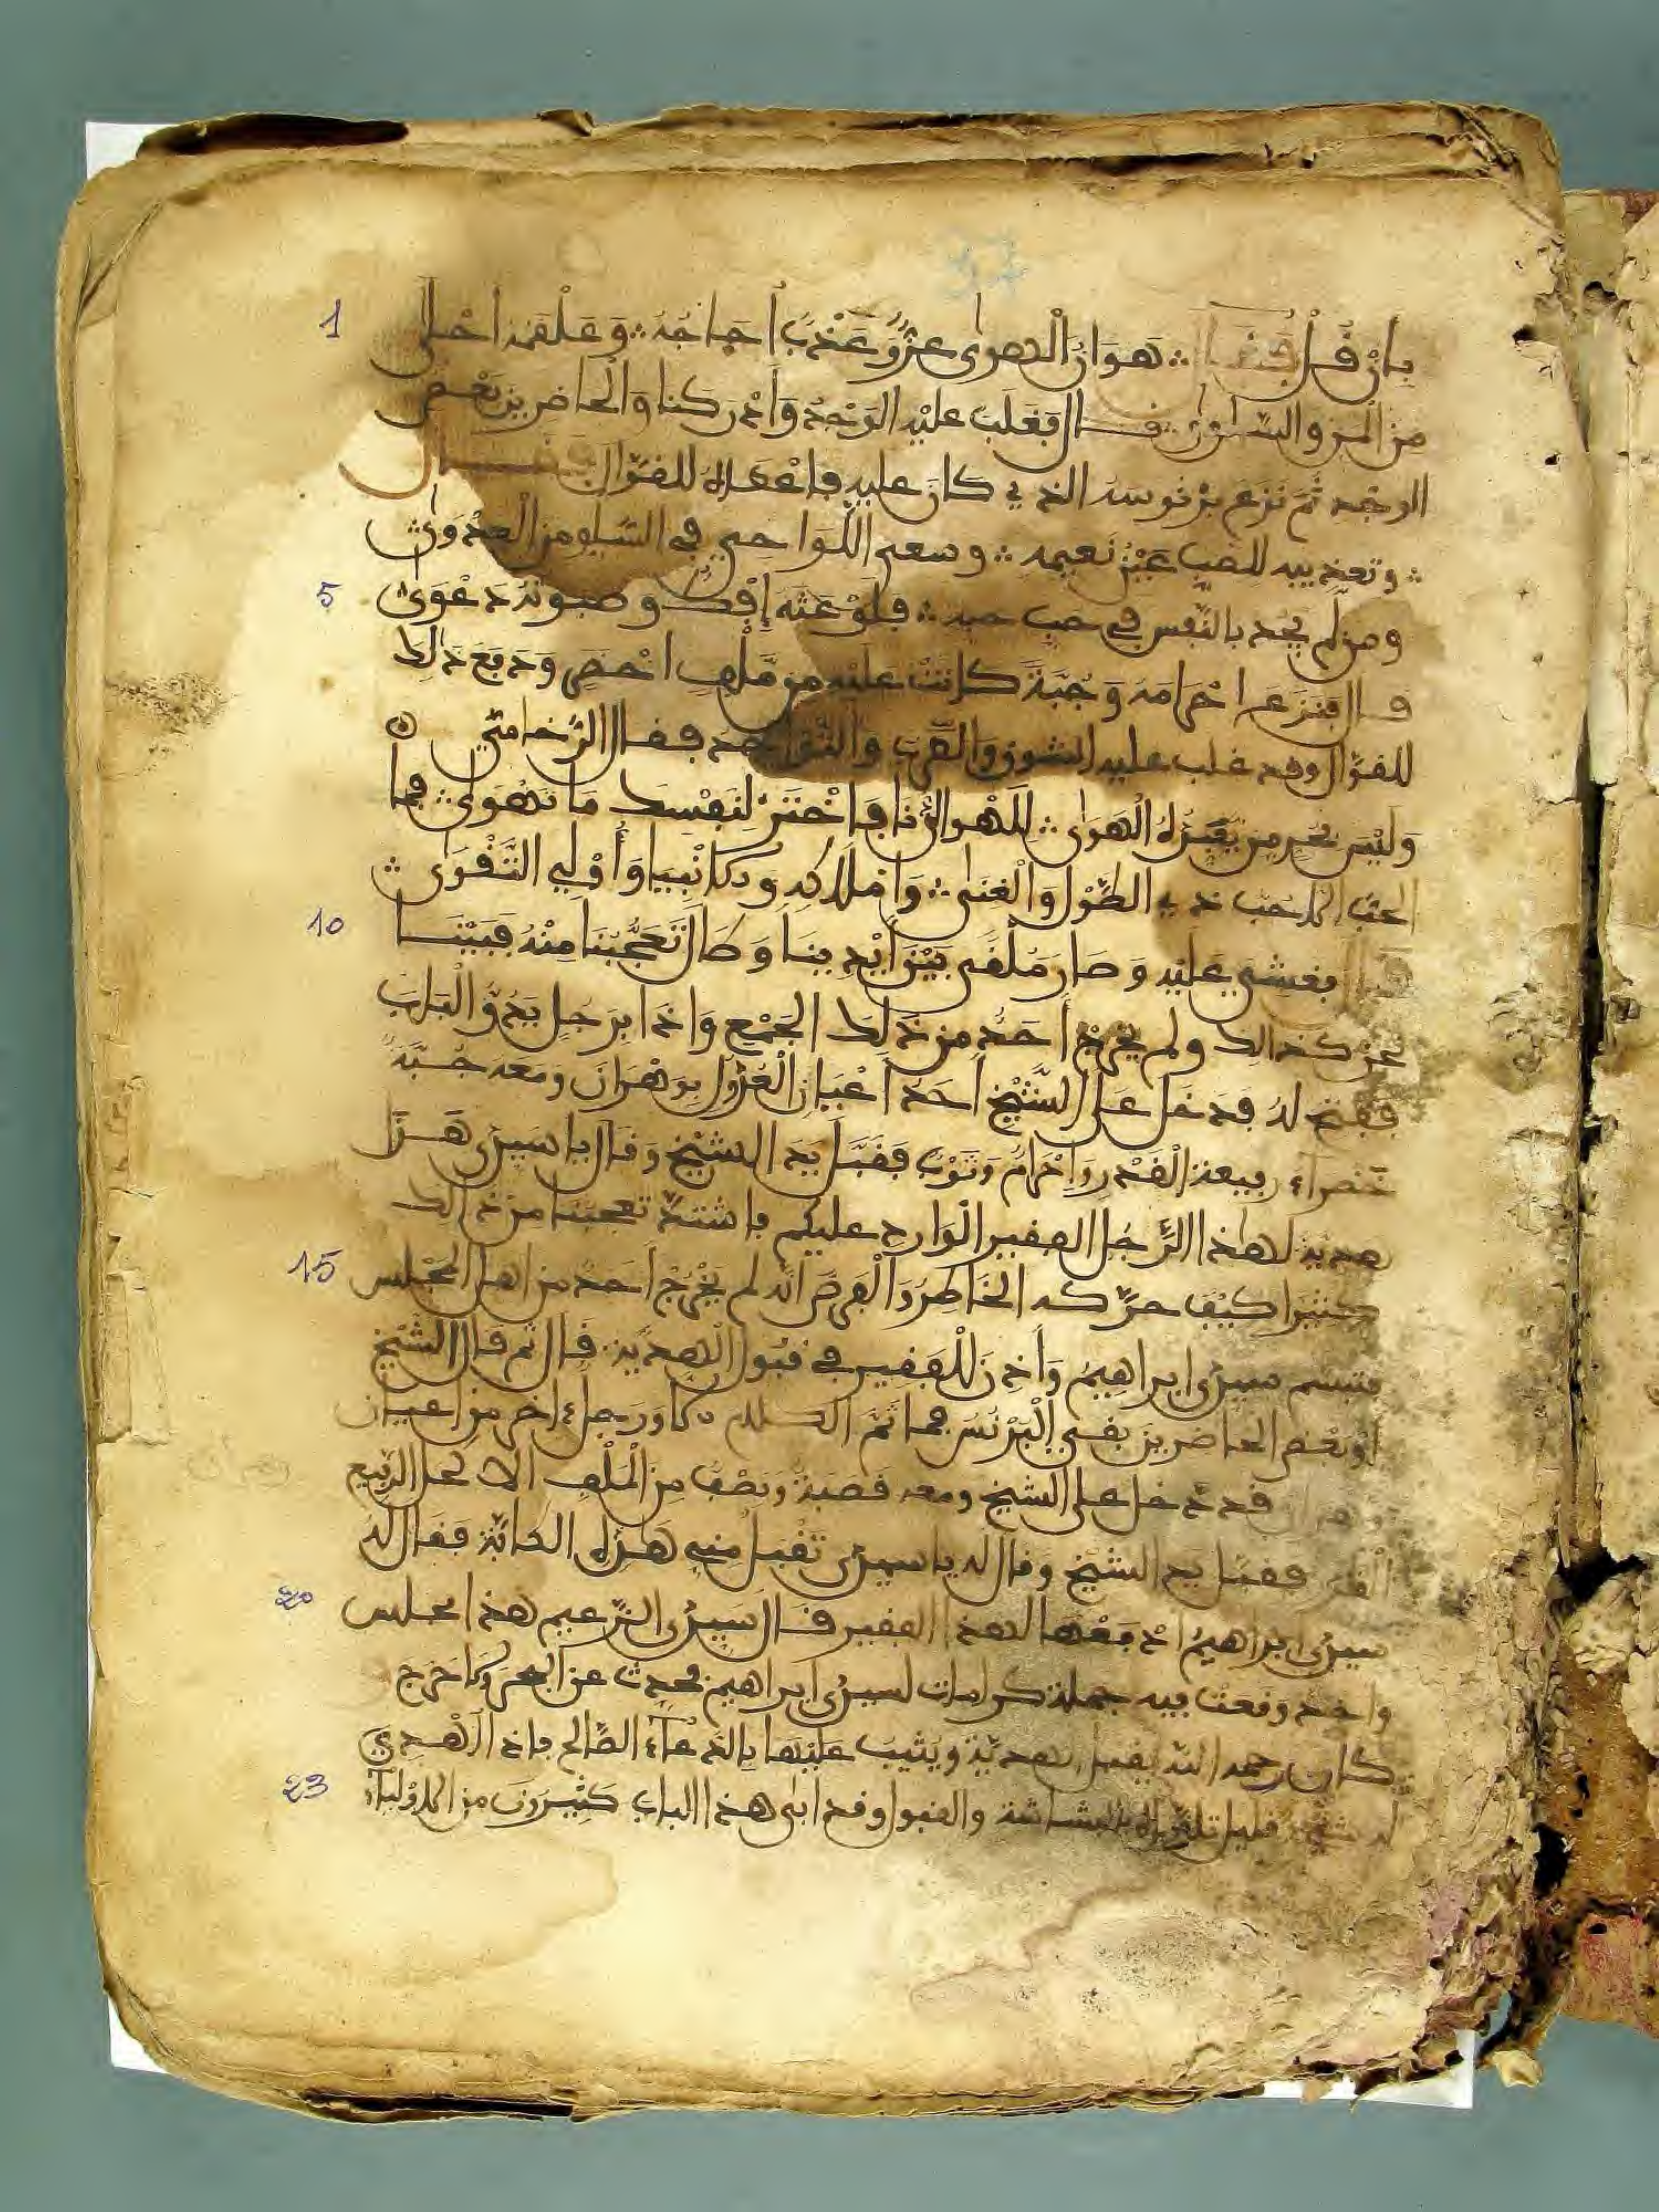 97
1 بان قل ∴ هوان الهوى عز وعذب أجاجه ∴ وعلقمه احلى
من المن والسلوى ∴ قال فغلب عليه الوجد وادركنا والحاضرين بعض
الوجد ثم نزع برنوسه الذي كان عليه فاعطاه للقوال فقال
∴ وتعذيبه للصب عين نعيمه ∴ وسعى اللواحي في السلو من العدوى ∴
5 ومن لم يجد بالنفس في حب حبه ∴ فلوعته إفك وصبوته دعوى ∴
قال فنزع احرامه وجبة كانت عليه من ملف اخضر ودفع ذلك
للقوال وقد غلب عليه الشوق والطرب والتواجد فقال الزخامتي
وليس بحر من يعبده الهوى ∴ للهو الزنا فاختر لنفسك ما تهوى ∴ فما
الحب الا حب ذي الطول والغنى ∴ واملاكه والانبيا وأولي التقوى ∴
10 فغشي عليه وصار ملقى بين ايدينا وطال تعجبنا منه فبينا
نحن كذالك ولم يخرج أحد من ذلك الجمع واذا برجل يدق الباب
ففتح له فدخل على الشيخ احد اعيان العزول بوهران ومعه جبة
خضراء رفيعة القدر واحرام وثوب فقبل يد الشيخ وقال يا سيدى هذه
هدية لهذا الرجل الفقير الوارد عليكم فاشتد تعجبنا من ذالك
15 كثيرا كيف حركه الخاطر والفرض انه لم يخرج احد من اهل المجلس
فتبسم سيدى ابراهيم وأذن للفقير في قبول الهدية. قال ثم قال الشيخ
او بعض الحاضرين بقي البرنس فما تم الكلام الا ورجل ءاخر من اعيان
وهران قد دخل على الشيخ ومعه قصبة ونصف من الملف الاكحل الرفيع
القدر فقبل يد الشيخ وقال له يا سيدى تقبل مني هذه الكانة فقال له
20 سيدى ابراهيم ادفعها لهذا الفقير قال سيدى الزعيم هذا مجلس
واحد وقعت فيه جملة كرامات لسيدى ابراهيم فحدث عن البحر ولا حرج
كان رحمه الله يقبل الهدية ويثيب عليها بالدعاء الصالح فاذا اهدي
23 له شيء قليل تلقاه بالبشاشة والقبول وقد ابى هذا الباب كثيرون من الاولياء